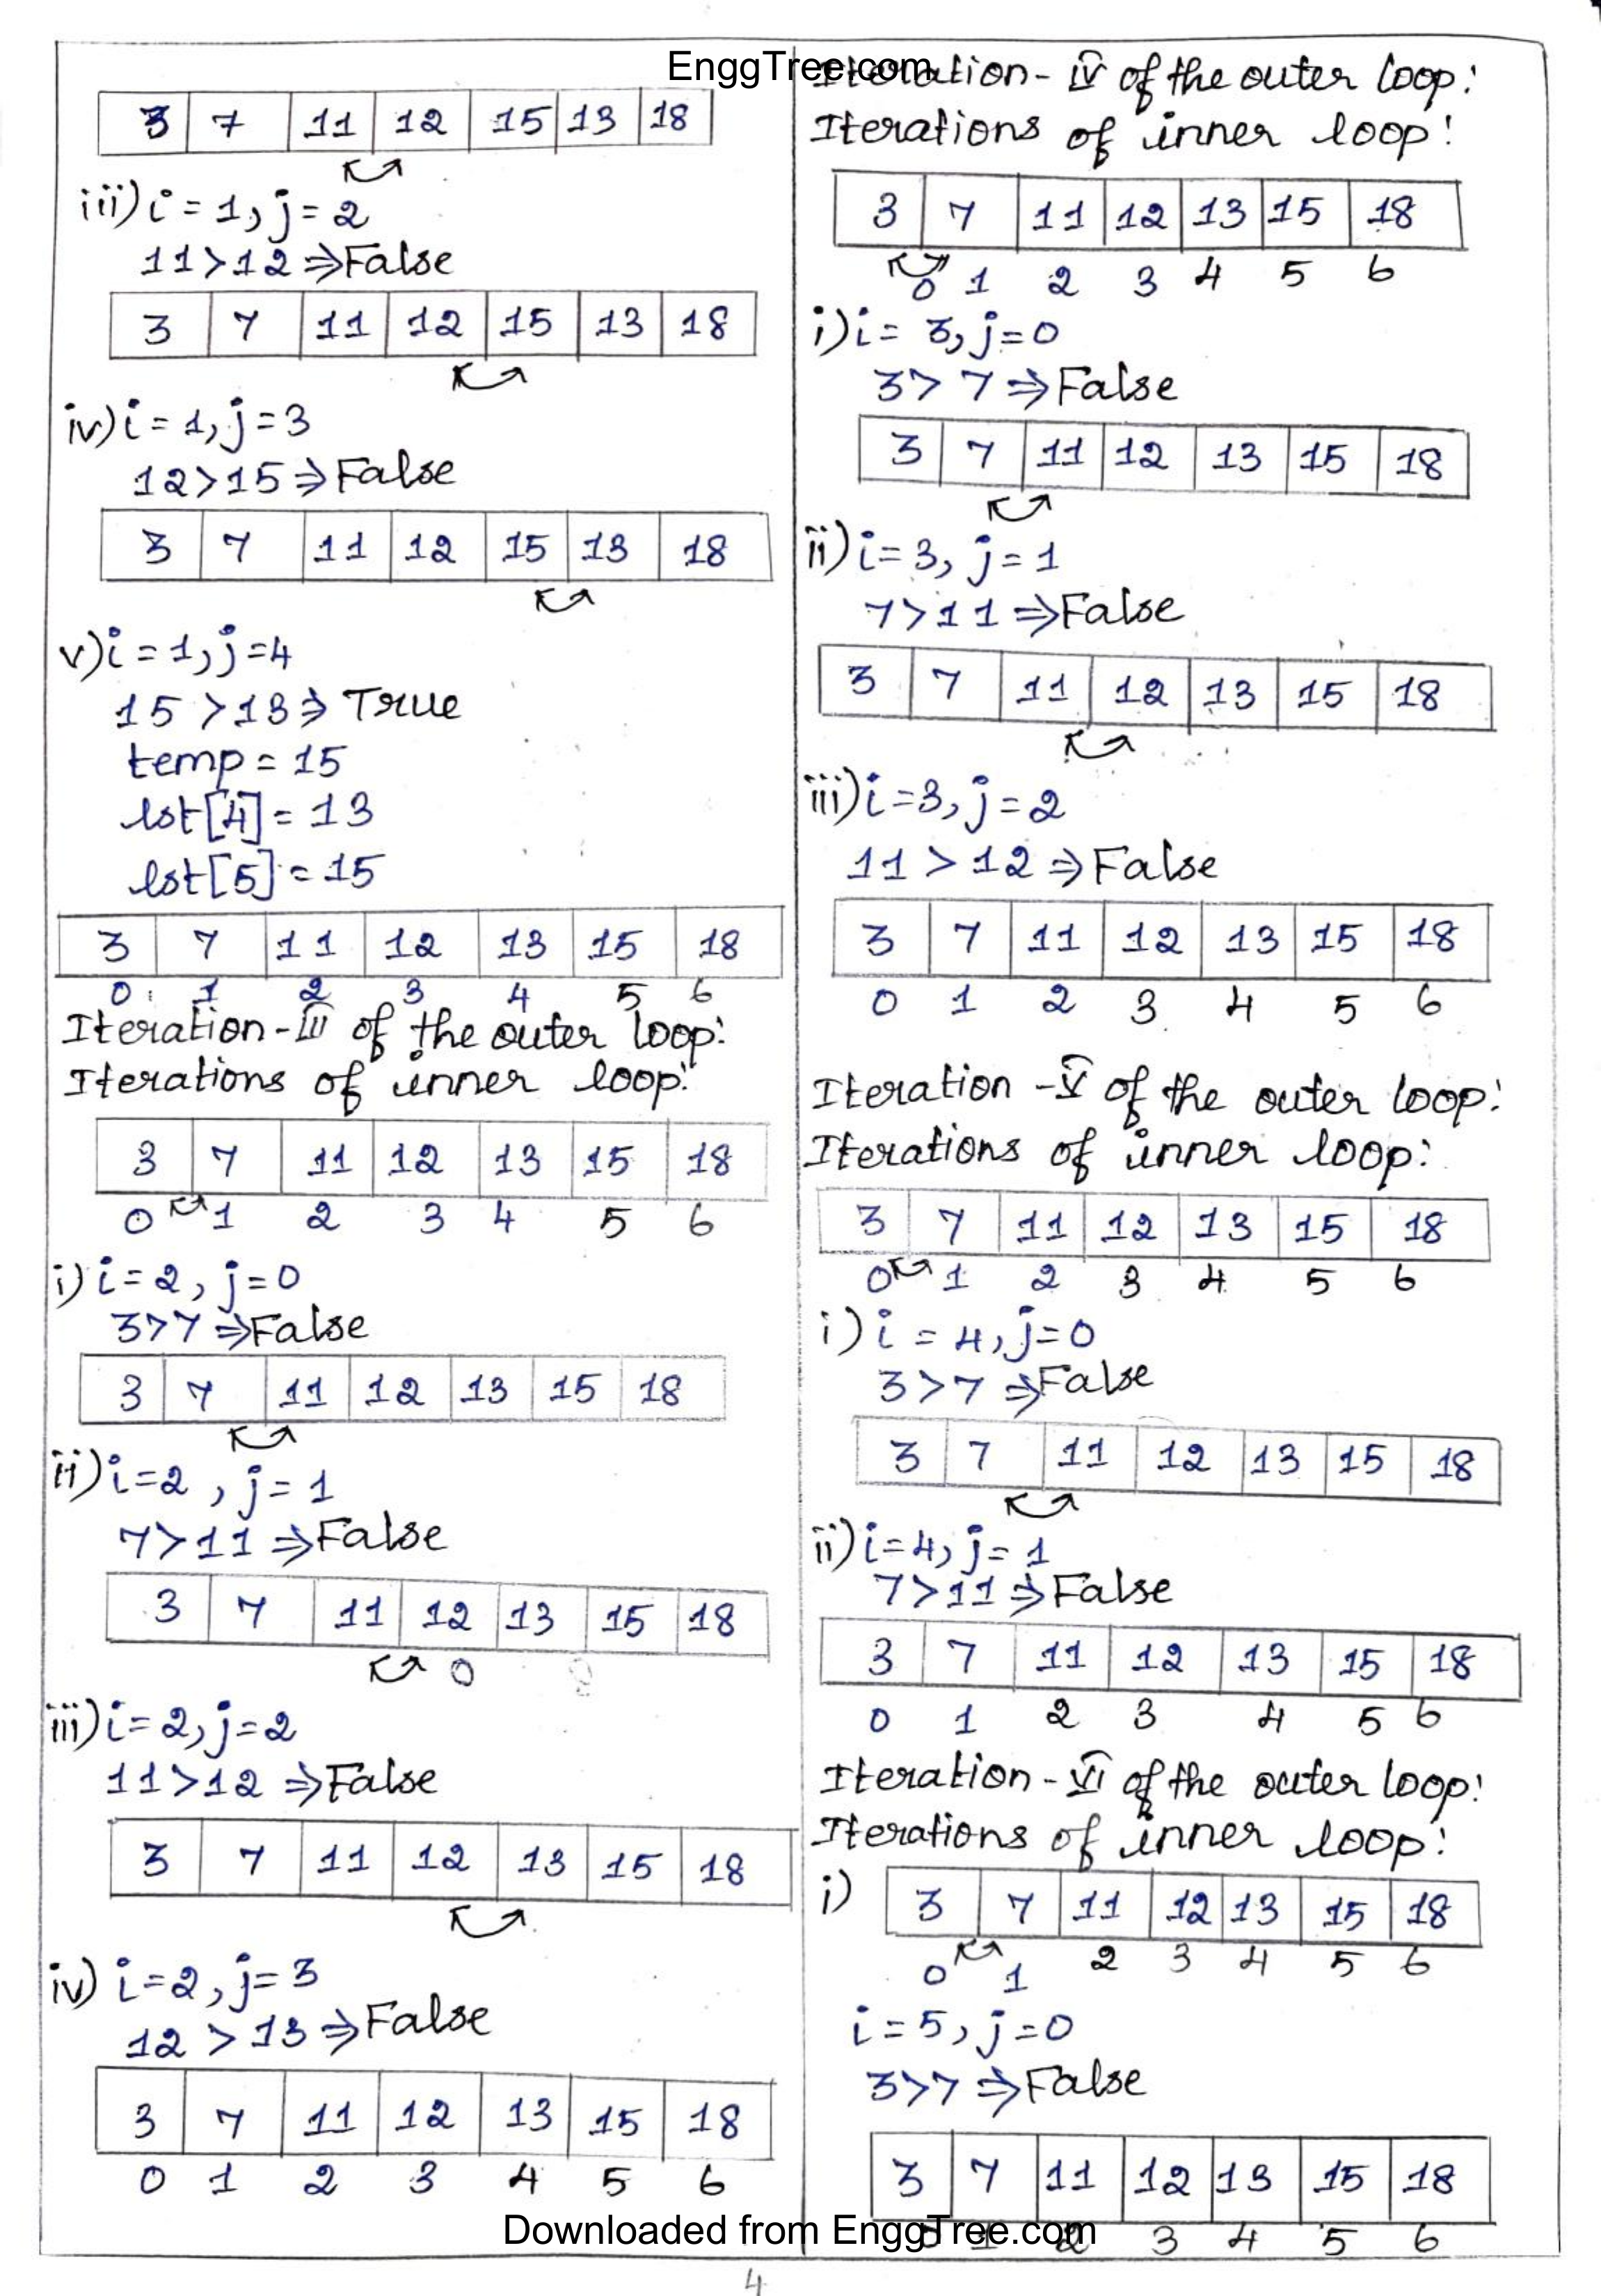 EnggTree.com
3 7 11 12 15 13 18
iii) i = 1, j = 2
11 > 12 ⇒ False
3 7 11 12 15 13 18
iv) i = 1, j = 3
12 > 15 ⇒ False
3 7 11 12 15 13 18
v) i = 1, j = 4
15 > 13 ⇒ True
temp = 15
lst[4] = 13
lst[5] = 15
3 7 11 12 13 15 18
0 1 2 3 4 5 6
Iteration - III of the outer loop:
Iterations of inner loop:
3 7 11 12 13 15 18
0 1 2 3 4 5 6
i) i = 2, j = 0
3 > 7 ⇒ False
3 7 11 12 13 15 18
ii) i = 2, j = 1
7 > 11 ⇒ False
3 7 11 12 13 15 18
iii) i = 2, j = 2
11 > 12 ⇒ False
3 7 11 12 13 15 18
iv) i = 2, j = 3
12 > 13 ⇒ False
3 7 11 12 13 15 18
0 1 2 3 4 5 6
Iteration - IV of the outer loop:
Iterations of inner loop:
3 7 11 12 13 15 18
0 1 2 3 4 5 6
i) i = 3, j = 0
3 > 7 ⇒ False
3 7 11 12 13 15 18
ii) i = 3, j = 1
7 > 11 ⇒ False
3 7 11 12 13 15 18
iii) i = 3, j = 2
11 > 12 ⇒ False
3 7 11 12 13 15 18
0 1 2 3 4 5 6
Iteration - V of the outer loop:
Iterations of inner loop:
3 7 11 12 13 15 18
0 1 2 3 4 5 6
i) i = 4, j = 0
3 > 7 ⇒ False
3 7 11 12 13 15 18
ii) i = 4, j = 1
7 > 11 ⇒ False
3 7 11 12 13 15 18
0 1 2 3 4 5 6
Iteration - VI of the outer loop:
Iterations of inner loop:
i) 3 7 11 12 13 15 18
0 1 2 3 4 5 6
i = 5, j = 0
3 > 7 ⇒ False
3 7 11 12 13 15 18
0 1 2 3 4 5 6
Downloaded from EnggTree.com
4